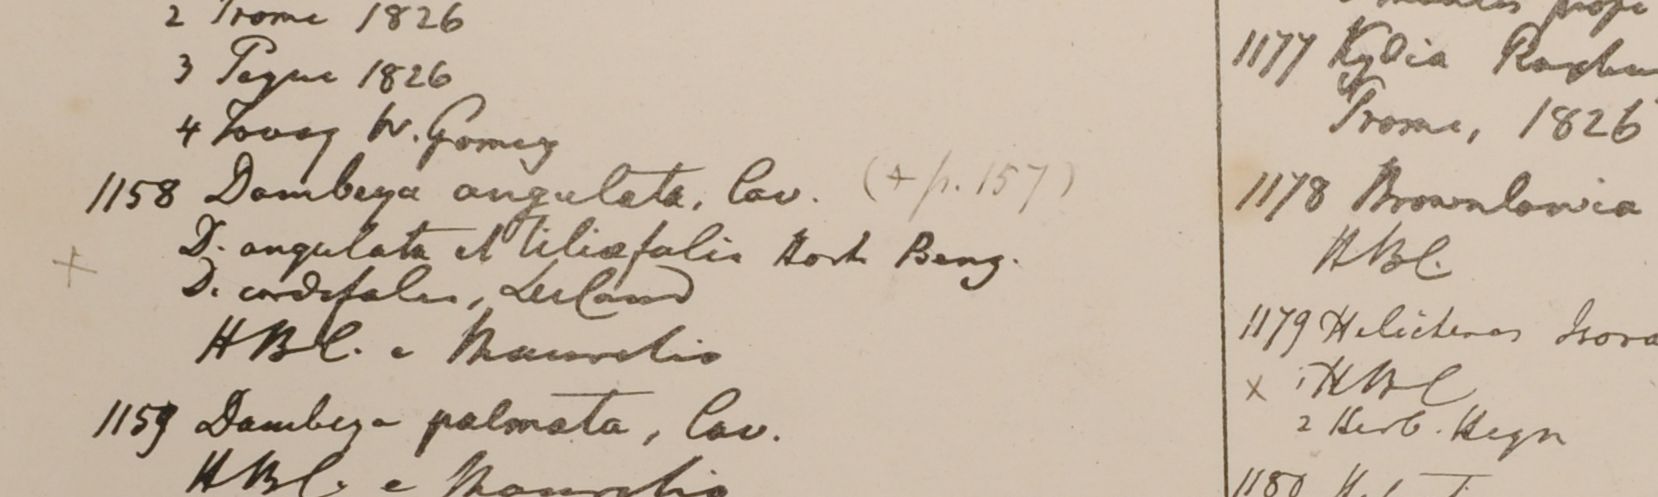 2 Prome 1826
3 Pegue 1826
4 Tovoy W. Gomez
1158 Dombeya angulata, Cav. (+ p. 157)
D. angulata et tiliaefolia Hort Beng.
+ D. cordifolia,
HBC. e Mauritio
1159 Dombeya palmata, Cav.
HBC. e Mauritio
montes prope
1177 Kydia Roxbu
Prome, 1826
1178 Brownlowia
HBC.
1179 Helicteres Isora
x 1 HBC
2 Herb. Heyn
1180